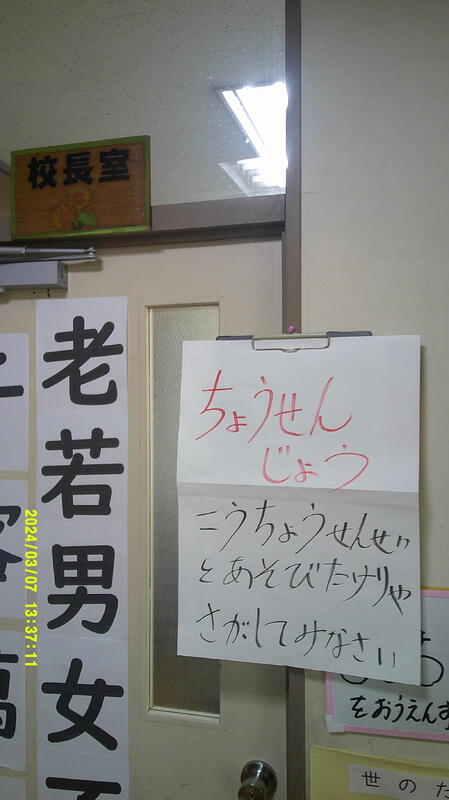 校長室
老若男女
ちょうせん
じょう
こうちょうせんせい
とあそびたけりゃ
さがしてみなさい
をおうえん
世のた
2024/03/07 13:37:11